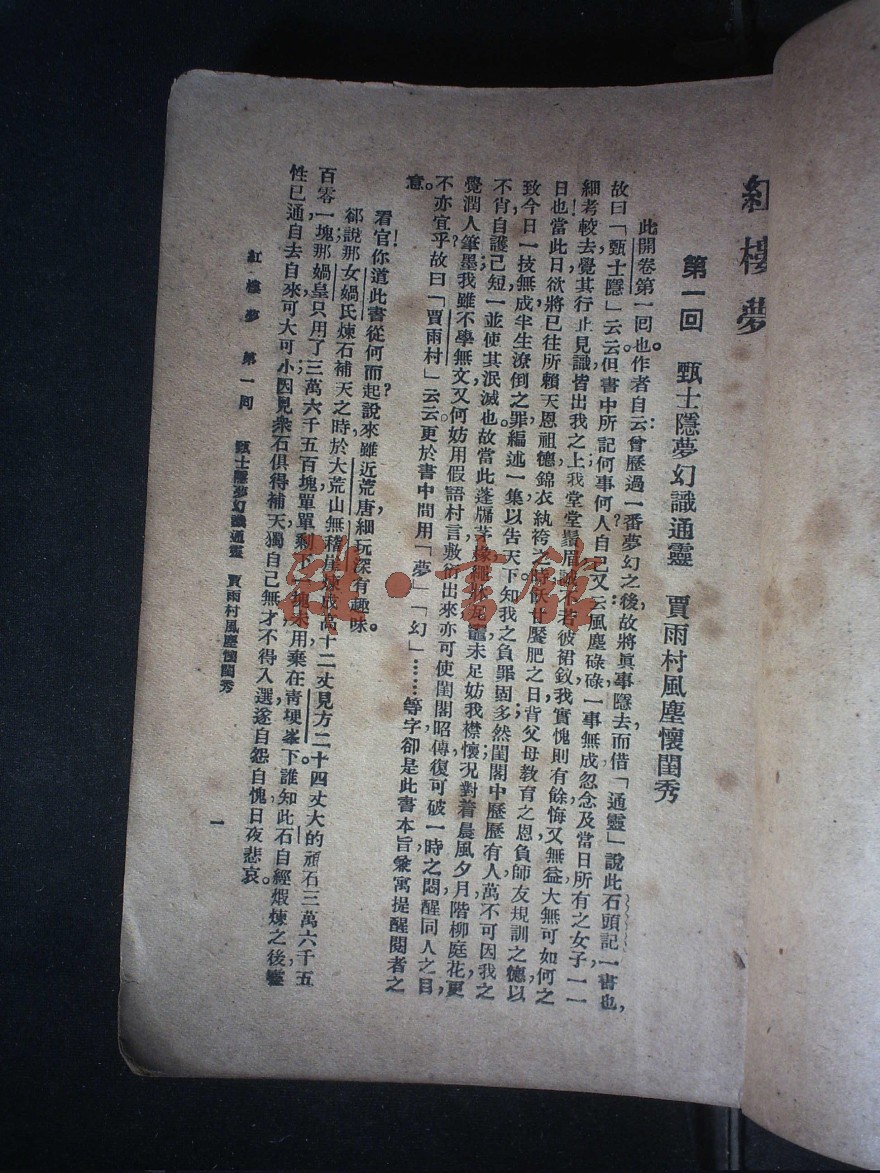 紅樓夢
第一回 甄士隱夢幻識通靈 賈雨村風塵懷閨秀
此開卷第一回也。作者自云:曾歷過一番夢幻之後,故將眞事隱去,而借「通靈」說此石頭記一書也,
故曰「甄士隱」云云。但書中所記何事何人?自己又云:風塵碌碌,一事無成,忽念及當日所有之女子,一一
細考較去,覺其行止見識皆出我之上。我堂堂鬚眉,誠不若彼裙釵;我實愧則有餘,悔又無益,大無可如何之
日也!當此日,欲將已往所賴天恩祖德,錦衣紈袴之時,飫甘饜肥之日,背父母教育之恩,負師友規訓之德,以
致今日一技無成半生潦倒之罪,編述一集,以告天下;知我之負罪固多,然閨閣中歷歷有人,萬不可因我之
不肖,自護己短,一並使其泯滅也。故當此蓬牖茅椽,繩牀瓦竈,未足妨我襟懷;況對着晨風夕月,階柳庭花,更
覺潤人筆墨;我雖不學無文,又何妨用假語村言敷衍出來,亦可使閨閣昭傳,復可破一時之悶,醒同人之目,
不亦宜乎?故曰「賈雨村」云云。更於書中間用「夢」「幻」……等字,卻是此書本旨,兼寓提醒閱者之
意。
看官!你道此書從何而起?說來雖近荒唐,細玩深有趣味。
卻說那女媧氏煉石補天之時,於大荒山無稽崖煉成高十二丈見方二十四丈大的頑石三萬六千五
百零一塊,那媧皇只用了三萬六千五百塊,單單剩下一塊未用,棄在靑埂峯下。誰知此石自經煆煉之後,靈
性已通,自去自來,可大可小;因見衆石俱得補天,獨自己無才不得入選,遂自怨自愧,日夜悲哀。
紅樓夢 第一回 甄士隱夢幻識通靈 賈雨村風塵懷閨秀
一
雜·書館